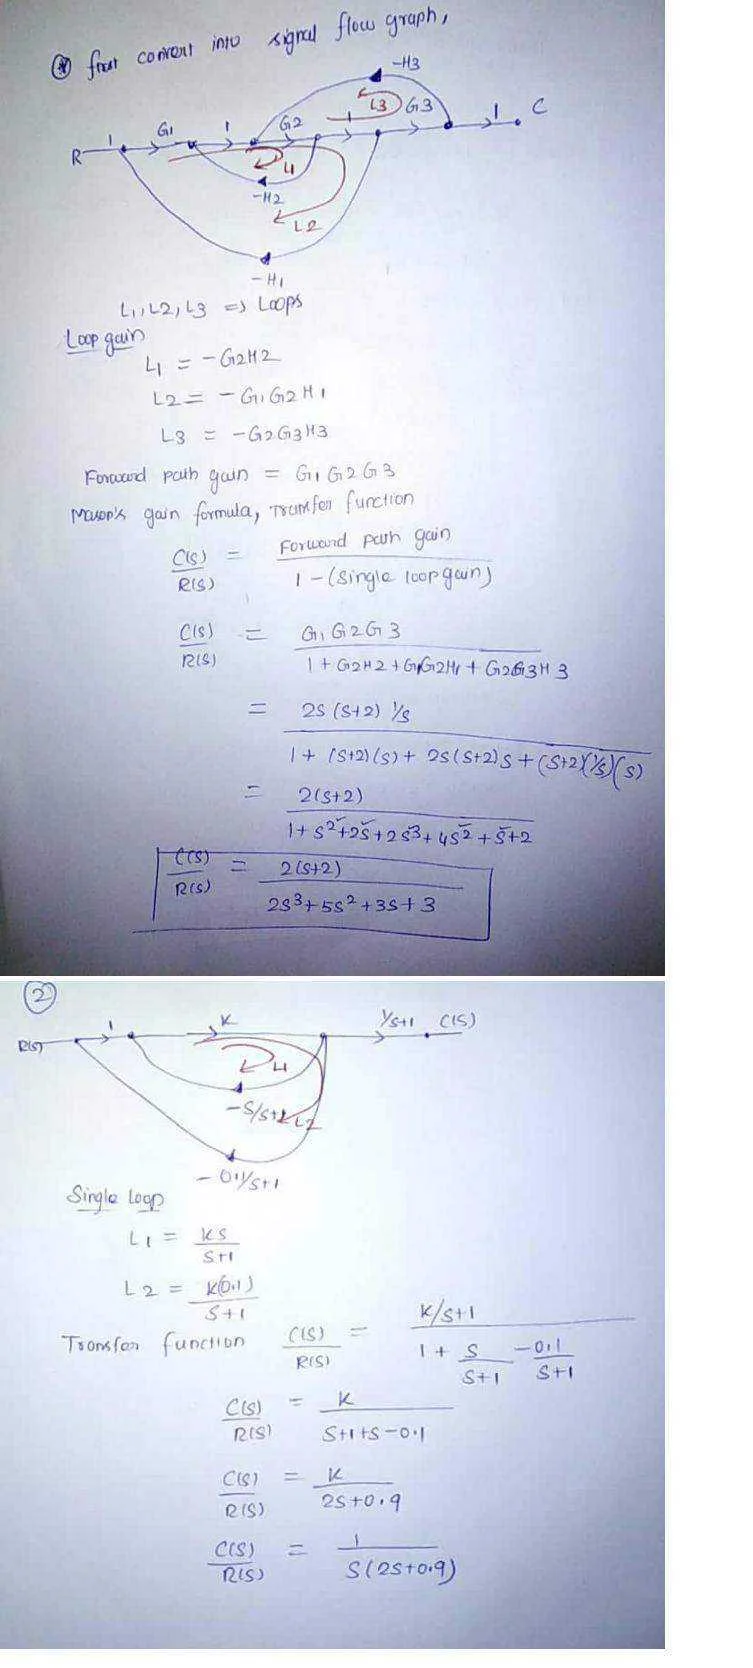 * first convert into signal flow graph,
-H3
R 1 G1 1 G2 L3 1 G3 1 C
L1
-H2
L2
-H1
L1, L2, L3 => Loops
Loop gain
L1 = -G2H2
L2 = -G1G2H1
L3 = -G2G3H3
Forward path gain = G1G2G3
Mason's gain formula, Transfer function
C(s)/R(s) = Forward path gain / 1-(single loop gain)
C(s)/R(s) = G1G2G3 / 1+G2H2+G1G2H1+G2G3H3
= 2s(s+2) 1/s / 1+(s+2)(s)+2s(s+2)s+(s+2)(1/s)(s)
= 2(s+2) / 1+s²+2s+2s³+4s²+s+2
C(s)/R(s) = 2(s+2) / 2s³+5s²+3s+3
2
R(s) 1 K 1/s+1 C(s)
L1
-s/s+1 L2
-0.1/s+1
Single loop
L1 = Ks/s+1
L2 = K(0.1)/s+1
Transfer function C(s)/R(s) = K/s+1 / 1+ s/s+1 -0.1/s+1
C(s)/R(s) = K / s+1+s-0.1
C(s)/R(s) = K / 2s+0.9
C(s)/R(s) = 1 / s(2s+0.9)